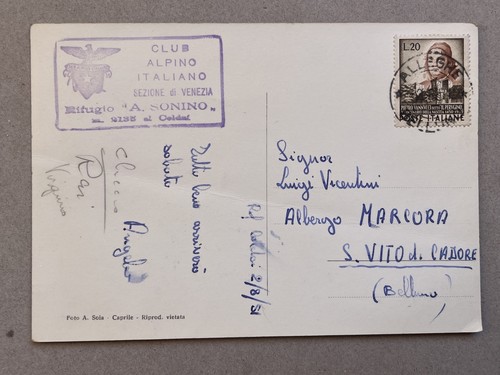 CLUB
ALPINO
ITALIANO
SEZIONE di VENEZIA
Rifugio "A. SONINO"
m. 2135 al Coldai
L.20
POSTE ITALIANE
ALLEGHE
Tutto bene arriverò
sabato
Angelo
Rif. Coldai 2/8/51
Signor
Luigi Vicentini
Albergo MARCORA
S. VITO di CADORE
(Belluno)
Foto A. Soia - Caprile - Riprod. vietata